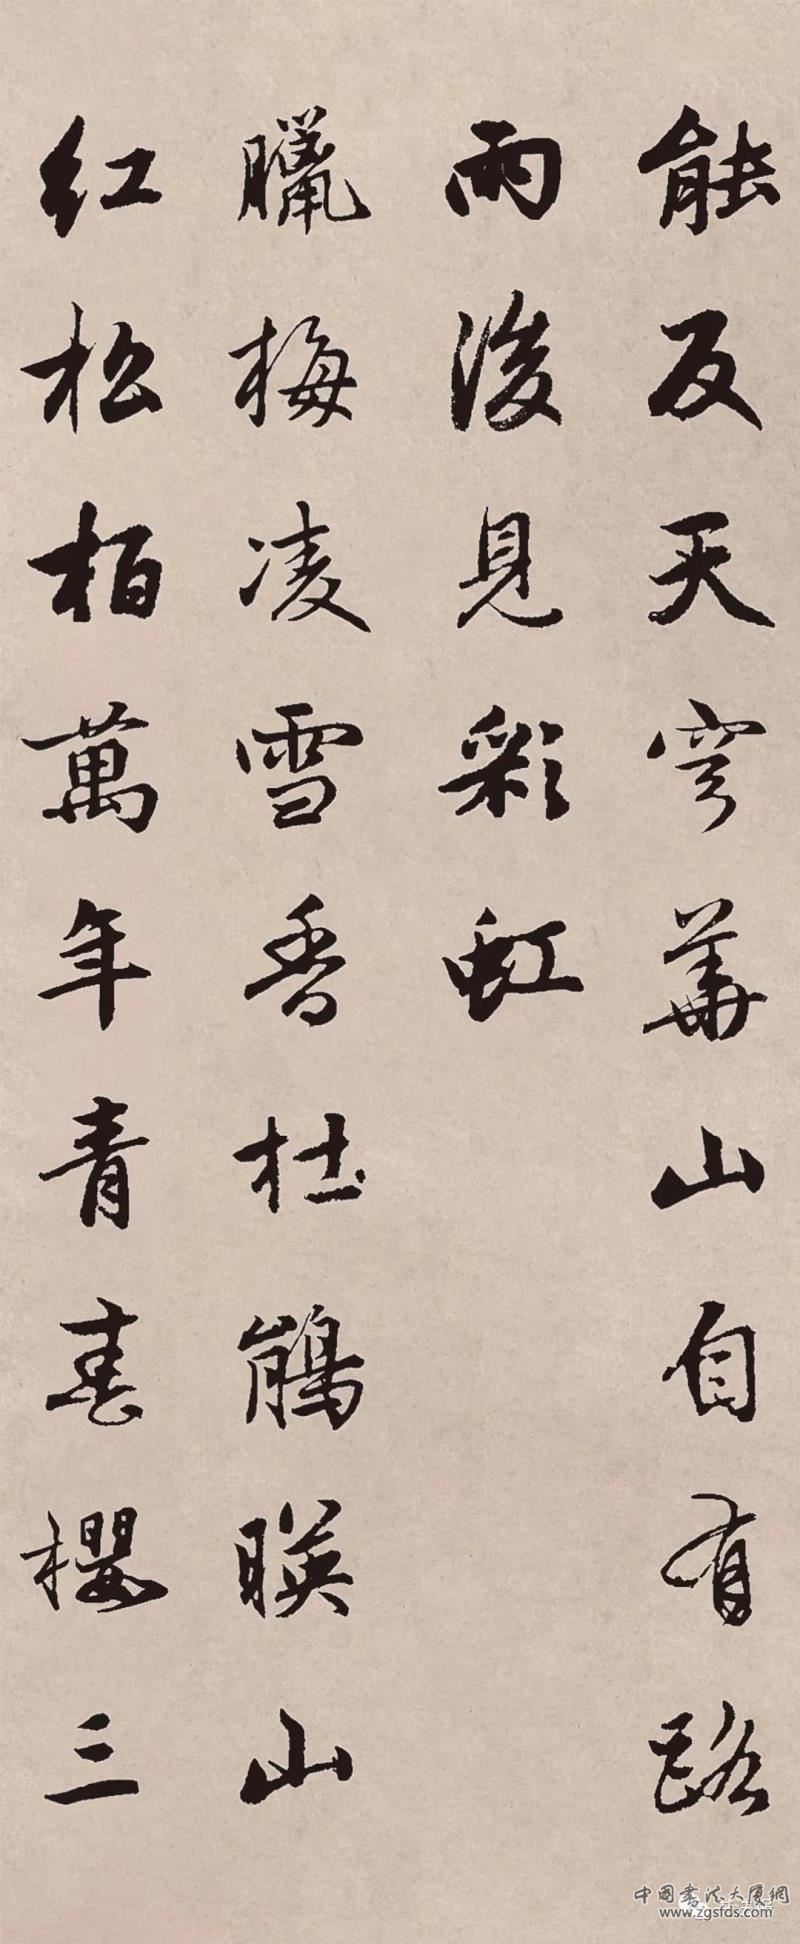 能反天穹華山自有路
雨後見彩虹
臘梅凌雪香杜鵑映山
红松柏萬年青春櫻三
中國書法大厦網
www.zgsfds.com